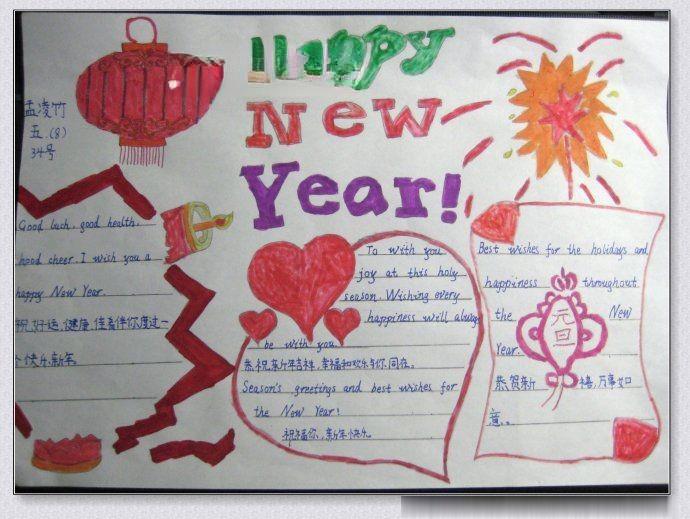 Happy
New
Year!
孟凌竹
五.(8)
34号
Good luck, good health,
hood cheer. I wish you a
happy New Year.
祝好运,健康,佳肴伴你度过一
个快乐新年.
To with you
joy at this holy
season. Wishing every
happiness will always
be with you.
恭祝新年吉祥,幸福和欢乐与你同在。
Season's greetings and best wishes for
the New Year!
祝福你,新年快乐
Best wishes for the holidays and
happiness throughout
the New
Year.
元旦
恭贺新禧,万事如
意。